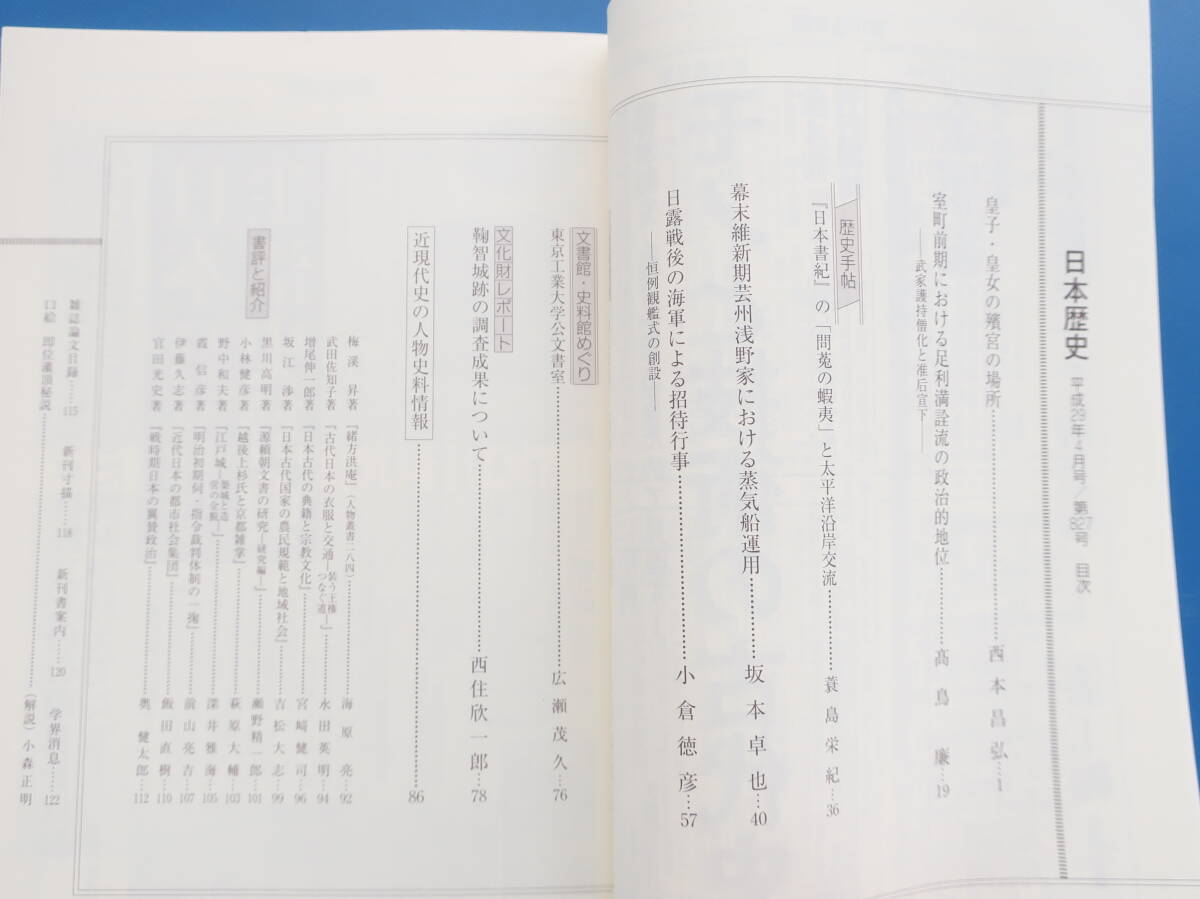 日本歴史 平成29年4月号／第827号 目次
皇子・皇女の殯宮の場所……西本昌弘…1
室町前期における足利満詮流の政治的地位……髙鳥廉…19
――武家護持僧化と准后宣下――
歴史手帖
『日本書紀』の「問菟の蝦夷」と太平洋沿岸交流……蓑島栄紀…36
幕末維新期芸州浅野家における蒸気船運用……坂本卓也…40
日露戦後の海軍による招待行事……小倉徳彦…57
――恒例観艦式の創設――
文書館・史料館めぐり
東京工業大学公文書室……広瀬茂久…76
文化財レポート
鞠智城跡の調査成果について……西住欣一郎…78
近現代史の人物史料情報……86
書評と紹介
梅溪昇著『緒方洪庵』（人物叢書二八四）……海原亮…92
武田佐知子著『古代日本の衣服と交通―装う王権つなぐ道―』……永田英明…94
増尾伸一郎著『日本古代の典籍と宗教文化』……宮﨑健司…96
坂江渉著『日本古代国家の農民規範と地域社会』……吉松大志…99
黒川高明著『源頼朝文書の研究―研究編―』……瀬野精一郎…101
小林健彦著『越後上杉氏と京都雑掌』……萩原大輔…103
野中和夫著『江戸城―築城と造営の全貌―』……深井雅海…105
霞信彦著『明治初期伺・指令裁判体制の一掬』……前山亮吉…107
伊藤久志著『近代日本の都市社会集団』……飯田直樹…110
官田光史著『戦時期日本の翼賛政治』……奥健太郎…112
雑誌論文目録……115 新刊寸描……118 新刊書案内……120 学界消息……122
口絵 即位灌頂秘説……（解説）小森正明